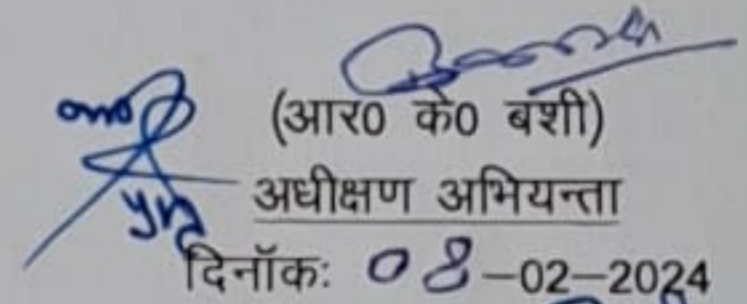 (आर0 के0 बंशी)
अधीक्षण अभियन्ता
दिनॉकः 08-02-2024